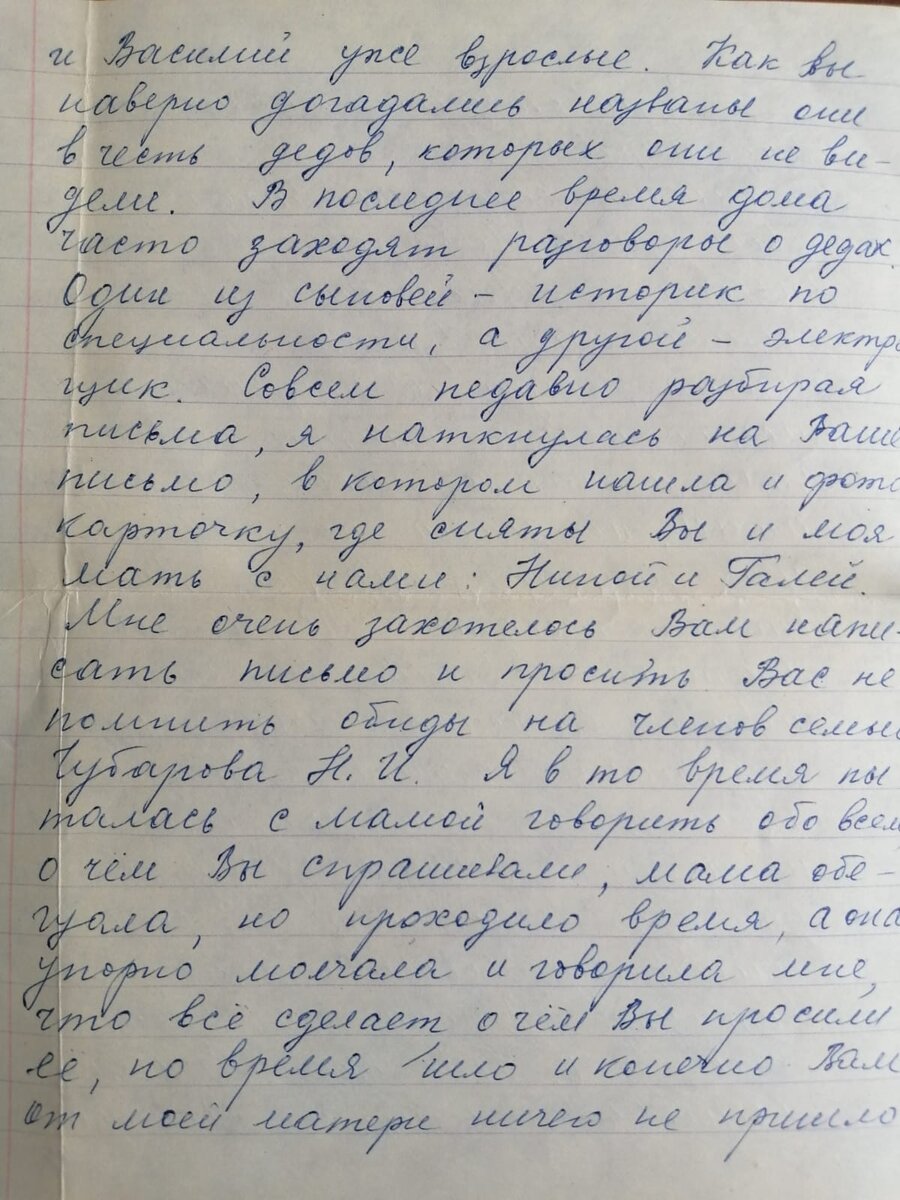 и Василий уже взрослые. Как вы
наверно догадались названы они
в честь дедов, которых они не ви-
дели. В последнее время дома
часто заходят разговоры о дедах.
Один из сыновей - историк по
специальности, а другой - электро
щик. Совсем недавно разбирая
письма, я наткнулась на Ваше
письмо, в котором нашла и фото
карточку, где сняты Вы и моя
мать с нами: Ниной и Галей.
Мне очень захотелось Вам напи-
сать письмо и просить Вас не
помнить обиды на членов семьи
Чубарова Н.И. Я в то время пы
талась с мамой говорить обо всем,
о чём Вы спрашивали, мама обе-
щала, но проходило время, а она
упорно молчала и говорила мне,
что всё сделает о чём Вы просили
её, но время шло и конечно Вам
от моей матери ничего не пришло